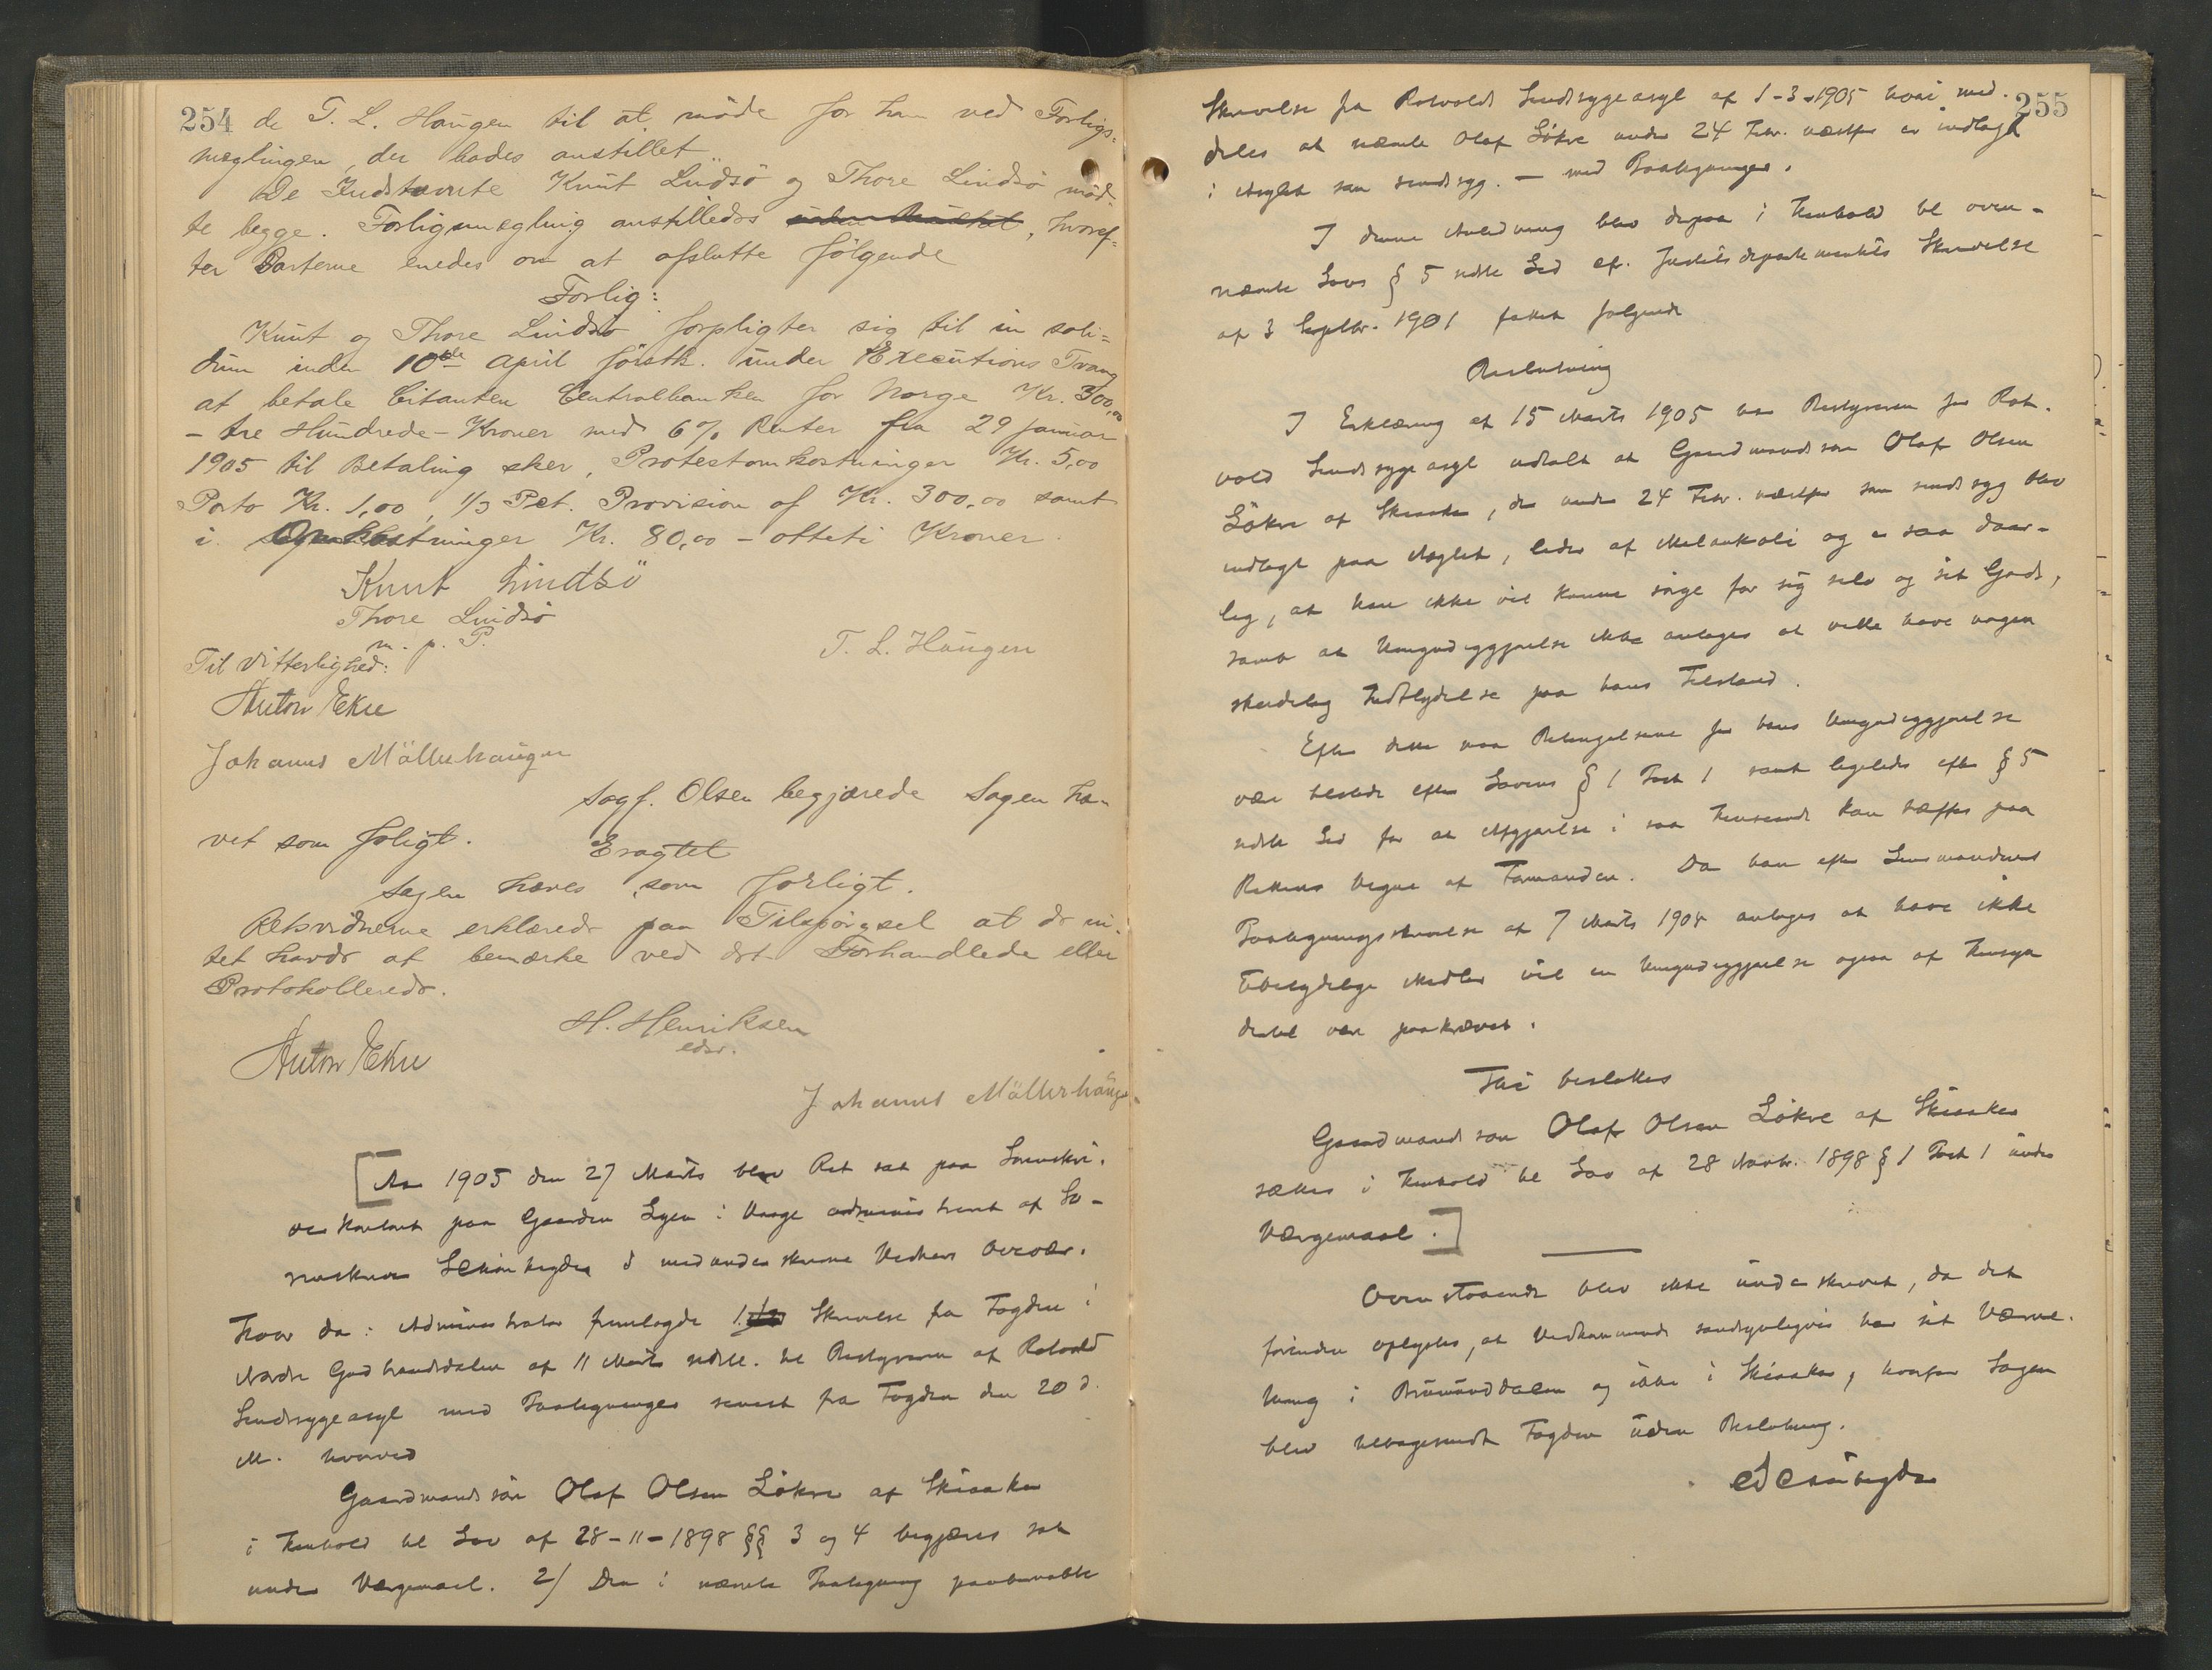 254 de T. L. Haugen til at møde for ham ved Forligs-
mæglingen, der bades anstillet
De Indstævnte Knut Lindsö og Thore Lindsö möd-
te begge. Forligsmægling anstilledes, hvoref-
ter Parterne enedes om at afslutte følgende
Forlig:
Knut og Thore Lindsö forpligter sig til in soli=
dum inden 10de April förstk. under Executions Tvang
at betale Citanten Centralbanken for Norge Kr. 300,00
- tre Hundrede - Kroner med 6% Renter fra 29 Januar
1905 til Betaling sker, Protestomkostninger Kr. 5,00
Porto Kr. 1,00, 1/3 Pct. Provision af Kr. 300,00 samt
i Omkostninger Kr. 80,00 - otteti Kroner.
Knut Lindsö
Thore Lindsö
m. p. P.
T. L. Haugen
Til Vitterlighed:
Anton Ekre
Johannes Möllerhaugen
Sagf. Olsen begjærede Sagen hæ-
vet som forligt.
Eragtet
Sagen hæves som forligt.
Retsvidnerne erklærede paa Tilspörgsel at de in-
tet havde at bemærke ved det Forhandlede eller
Protokollerede.
H. Henriksen
edsv.
Anton Ekre
Johannes Möllerhaugen
[Aar 1905 den 27 Marts blev Ret sat paa Sorenskri-
verkontoret paa Gaarden Lyen i Vaage administreret af So-
renskriver i medunderskrevne Vidners Overvær.
Hvor da: Administrator fremlagde 1. Skrivelse fra Fogden i
Nordre Gudbrandsdalen af 11 Marts sidstl. til Bestyreren af Rotvold
Sindssygeasyl med Paategninger senest fra Fogden den 20 d.
M. hvorved
Gaardmandssön Olaf Olsen Lökre af Skiaaker
i Henhold til Lov af 28-11-1898 §§ 3 og 4 begjæres sat
under Værgemaal. 2/ Den i nævnte Paategning paaberaabte
255
Skrivelse fra Rotvold Sindssygeasyl af 1-3-1905 hvori med-
deles at nævnte Olaf Lökre under 24 Febr. næstfør er indlagt
i Asylet som sindssyg. — med Paategninger.
I denne Anledning blev derpaa i Henhold til oven-
nævnte Lovs § 5 sidste Led cfr. Justitsdepartementets Skrivelse
af 3 Septbr. 1901 fattet følgende
Beslutning
I Erklæring af 15 Marts 1905 har Bestyreren for Rot-
vold Sindssygeasyl udtalt at Gaardmandssön Olaf Olsen
Lökre af Skiaaker, der under 24 Febr. næstfør som sindssyg blev
indlagt paa Asylet, lider af Melankoli og er saa daar-
lig, at han ikke vil kunne sörge for sig selv og sit Gods,
samt at Umyndiggjørelse ikke antages at ville have nogen
skadelig Indflydelse paa hans Tilstand.
Efter dette maa Betingelserne for hans Umyndiggjørelse
være tilstede efter Lovens § 1 Post 1 samt ligeledes efter § 5
sidste Led for at Afgjørelse i saa Henseende kan træffes paa
Rettens Vegne af Formanden. Da han efter Lensmandens
Paategningsskrivelse af 7 Marts 1905 antages at have ikke
Ubetydelige Midler vil en Umyndiggjørelse ogsaa af Hensyn
dertil være paakrævet.
Thi besluttes
Gaardmandssön Olaf Olsen Lökre af Skiaaker
sættes i Henhold til Lov af 28 Novbr. 1898 § 1 Post 1 under
Værgemaal.]
Ovenstaaende blev ikke underskrevet, da det
forinden oplystes, at Vedkommende sandsynligvis har sit Værne-
thing i Brünunddalen og ikke i Skiaaker, hvorfor Sagen
blev tilbagesendt Fogden uden Beslutning.